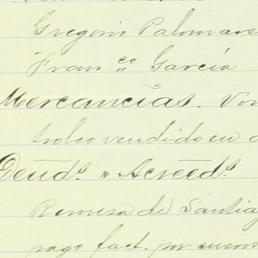 Gregorio Palomare
Fran.co García
Mercancías. Von
vendido en
Deud.s & Acreed.s
Remesa de Santia
pago fact. por cuen